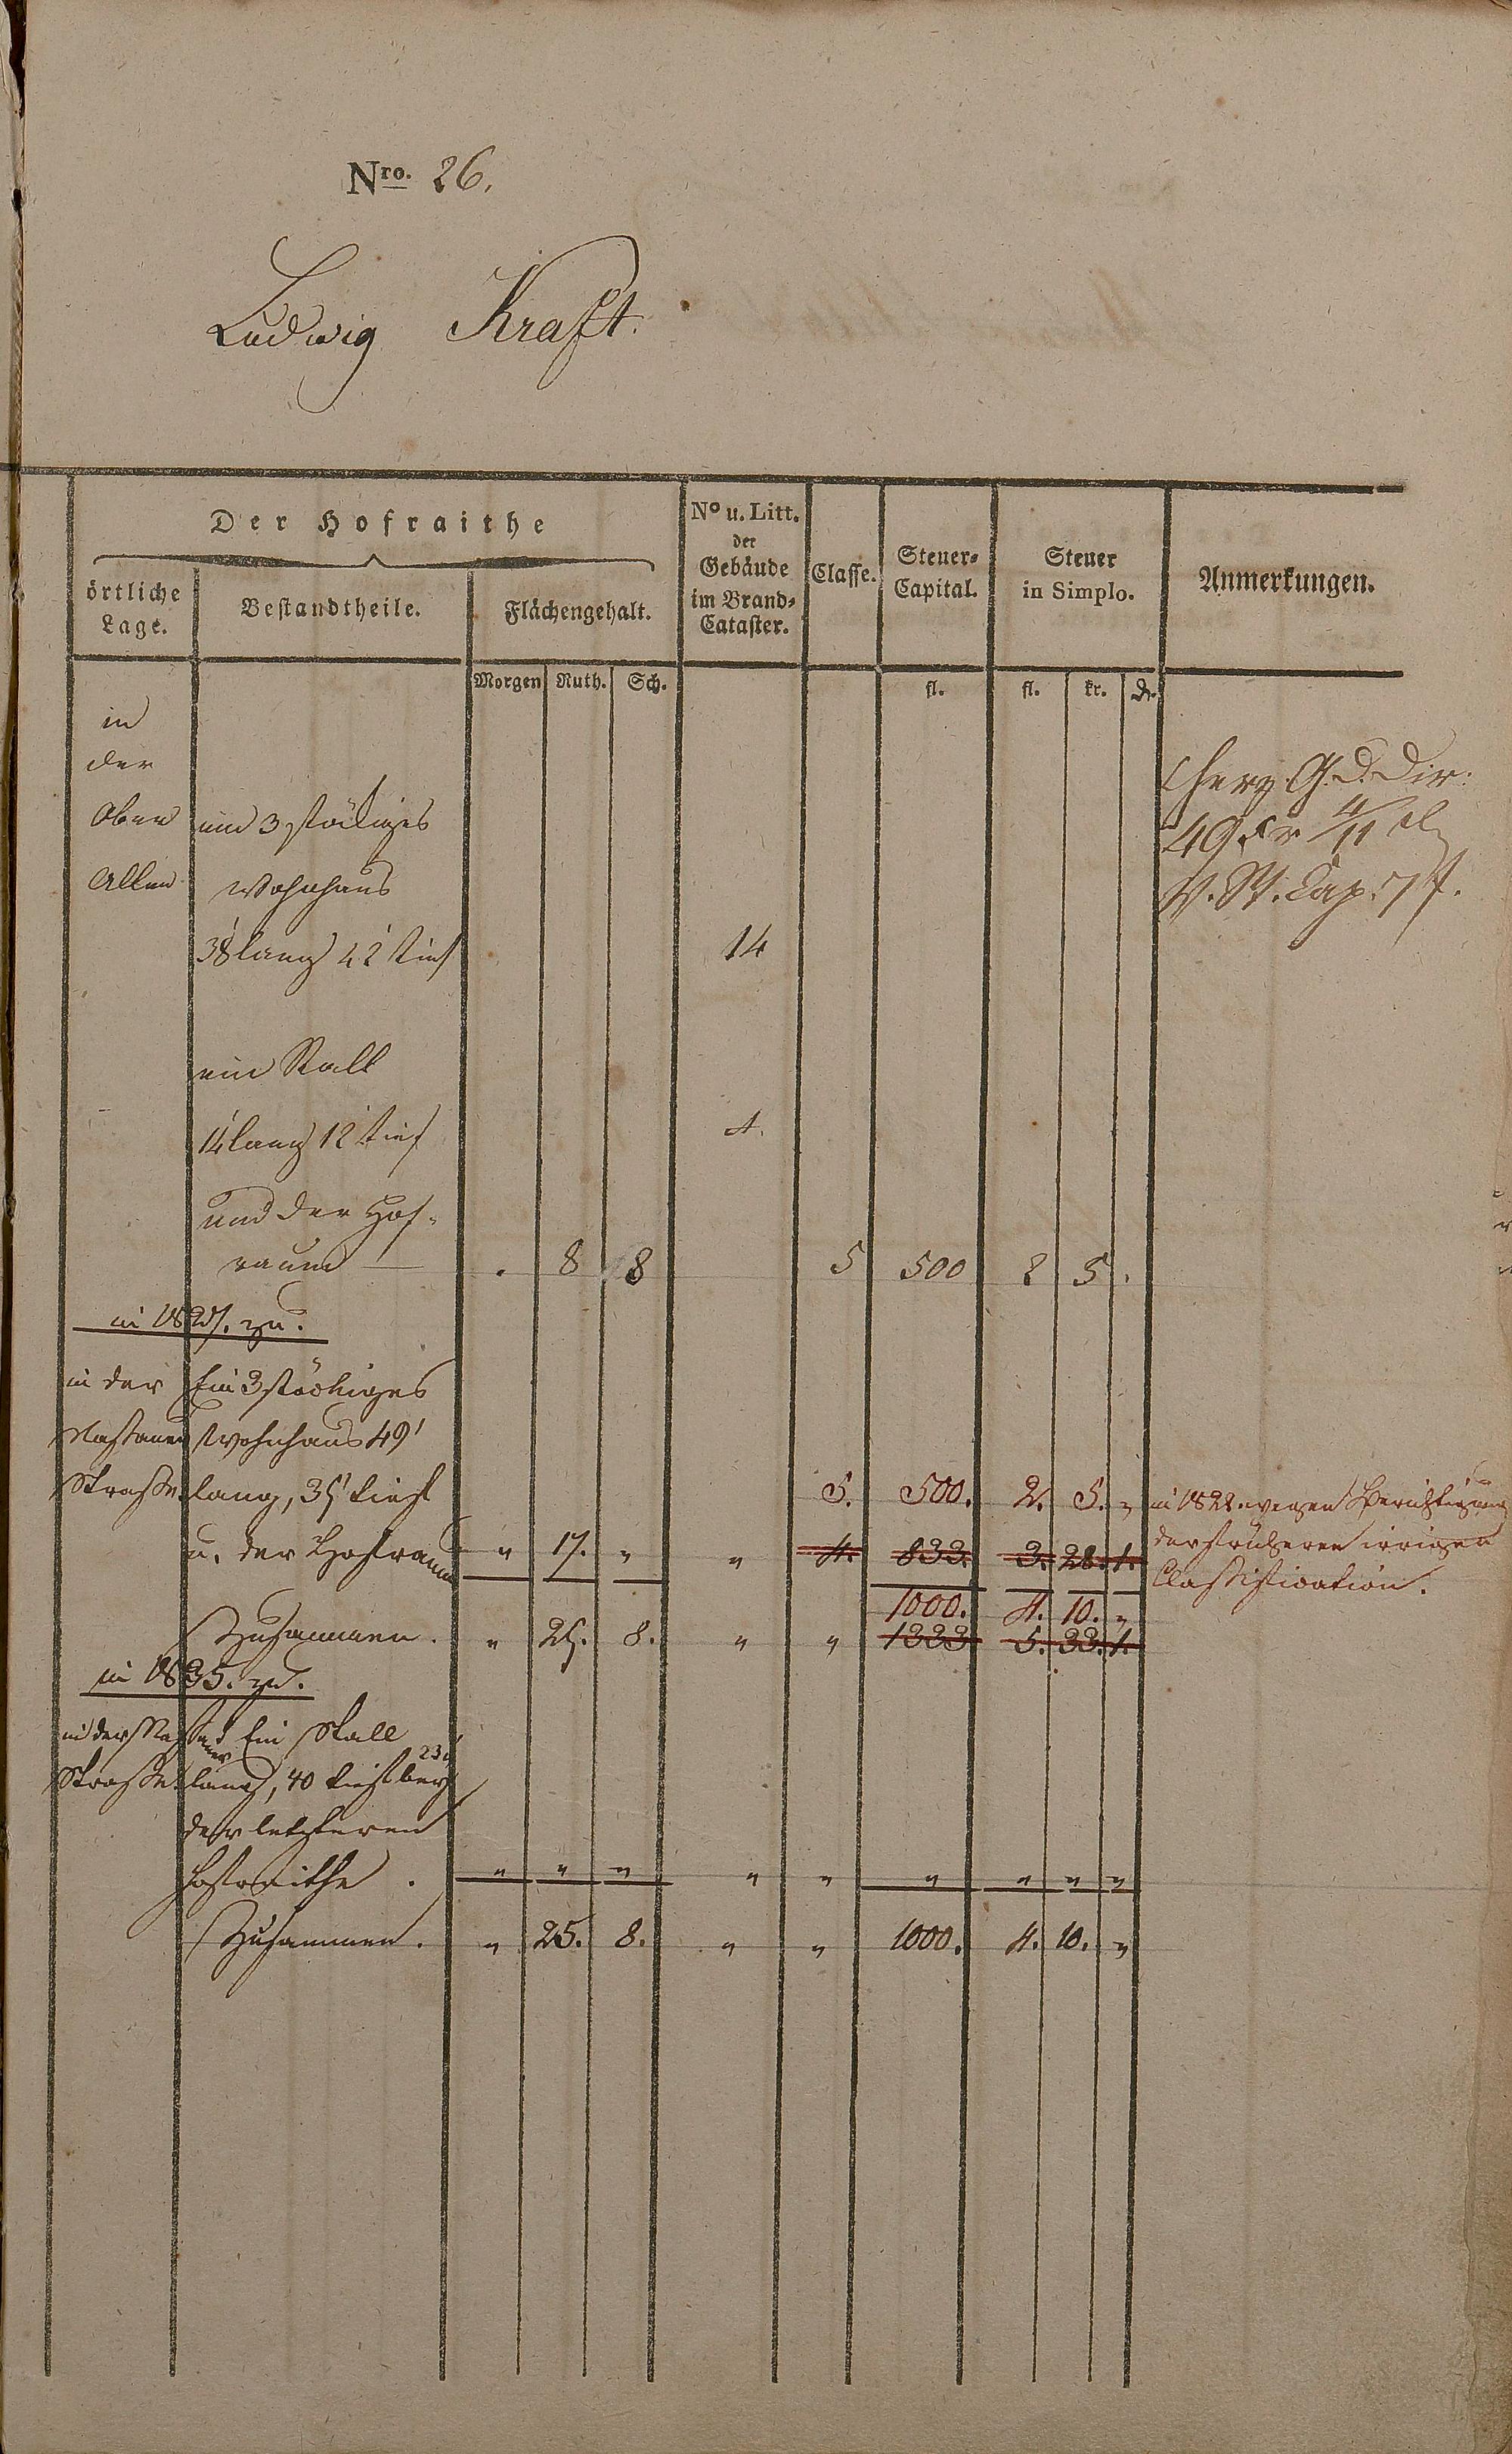 Nro. 26.
Ludwig Kraft.
Der Hofraithe
örtliche Lage.
Bestandtheile.
Flächengehalt.
No u. Litt. der Gebäude im Brand-Cataster.
Classe.
Steuer-Capital.
Steuer in Simplo.
Anmerkungen.
Morgen Ruth. Sch. fl. fl. kr. d.
in
der
Obern ein 3 stöckiges
Allee Wohnhaus
38' lang 42' tief 14
ein Stall
14' lang 12' tief A.
und der Hof-
raum . 8 8 5 500 2 5 .
in 1827. zu.
in der Ein 3 stöckiges
Nassauer Wohnhaus 49'
Straße. lang, 35' tief 5. 500. 2. 5. „ in 1828. wegen Berichtigung
u. der Hofraum „ 17. „ „ 4. 833. 3. 28. 1. der früheren irrigen
Classification.
1000. 4. 10. „
Zusammen. „ 25. 8. „ „ 1333 5. 33. 1.
in 1835. zu.
in der Nassauer Ein Stall 23'
Straße. lang, 40 tief bey
der letzteren
Hofraithe . „ „ „ „ „ „ „ „ „
Zusammen. „ 25. 8. „ „ 1000. 4. 10. „